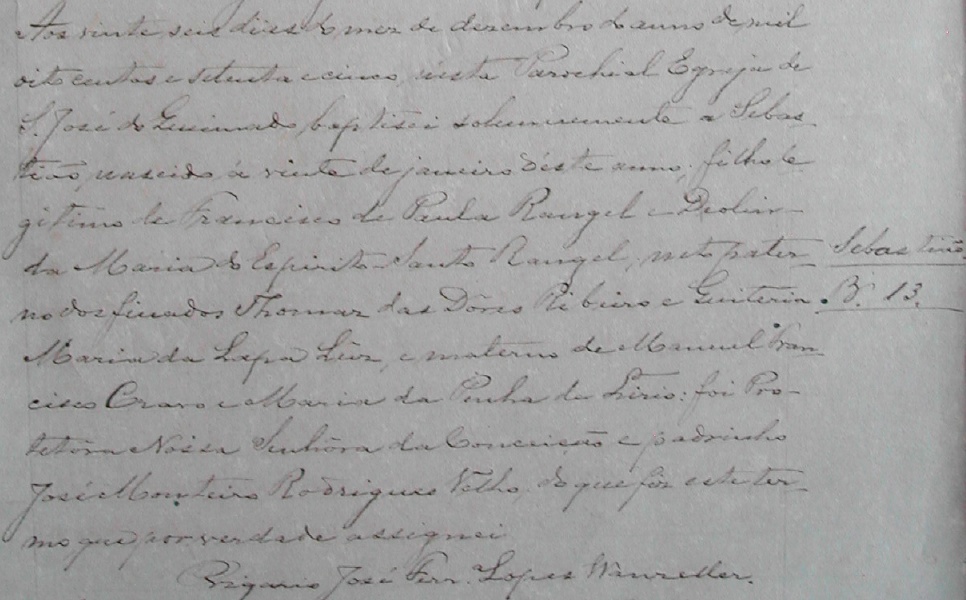 Aos vinte seis dias do mez de dezembro do anno de mil
oito centos e setenta e cinco, nesta Parochial Egreja de
S. José do Queimado, baptisei solemnemente a Sebas-
tião, nascido á vinte de janeiro d'este anno, filho le
gitimo de Francisco de Paula Rangel e Deolin-
da Maria do Espirito-Santo Rangel; neto pater-
no dos finados Thomaz das Dôres Ribeiro e Quiteria
Maria da Lapa Luz, e materno de Manuel Fran-
cisco Cravo e Maria da Penha de Lirio: foi Pro-
tetôra Nossa Senhôra da Conceição e padrinho
José Monteiro Rodrigues Velho, do que fiz este ter-
mo que por verdade assignei
Vigario José Ferr. Lopes
Sebastião.
B. 13.